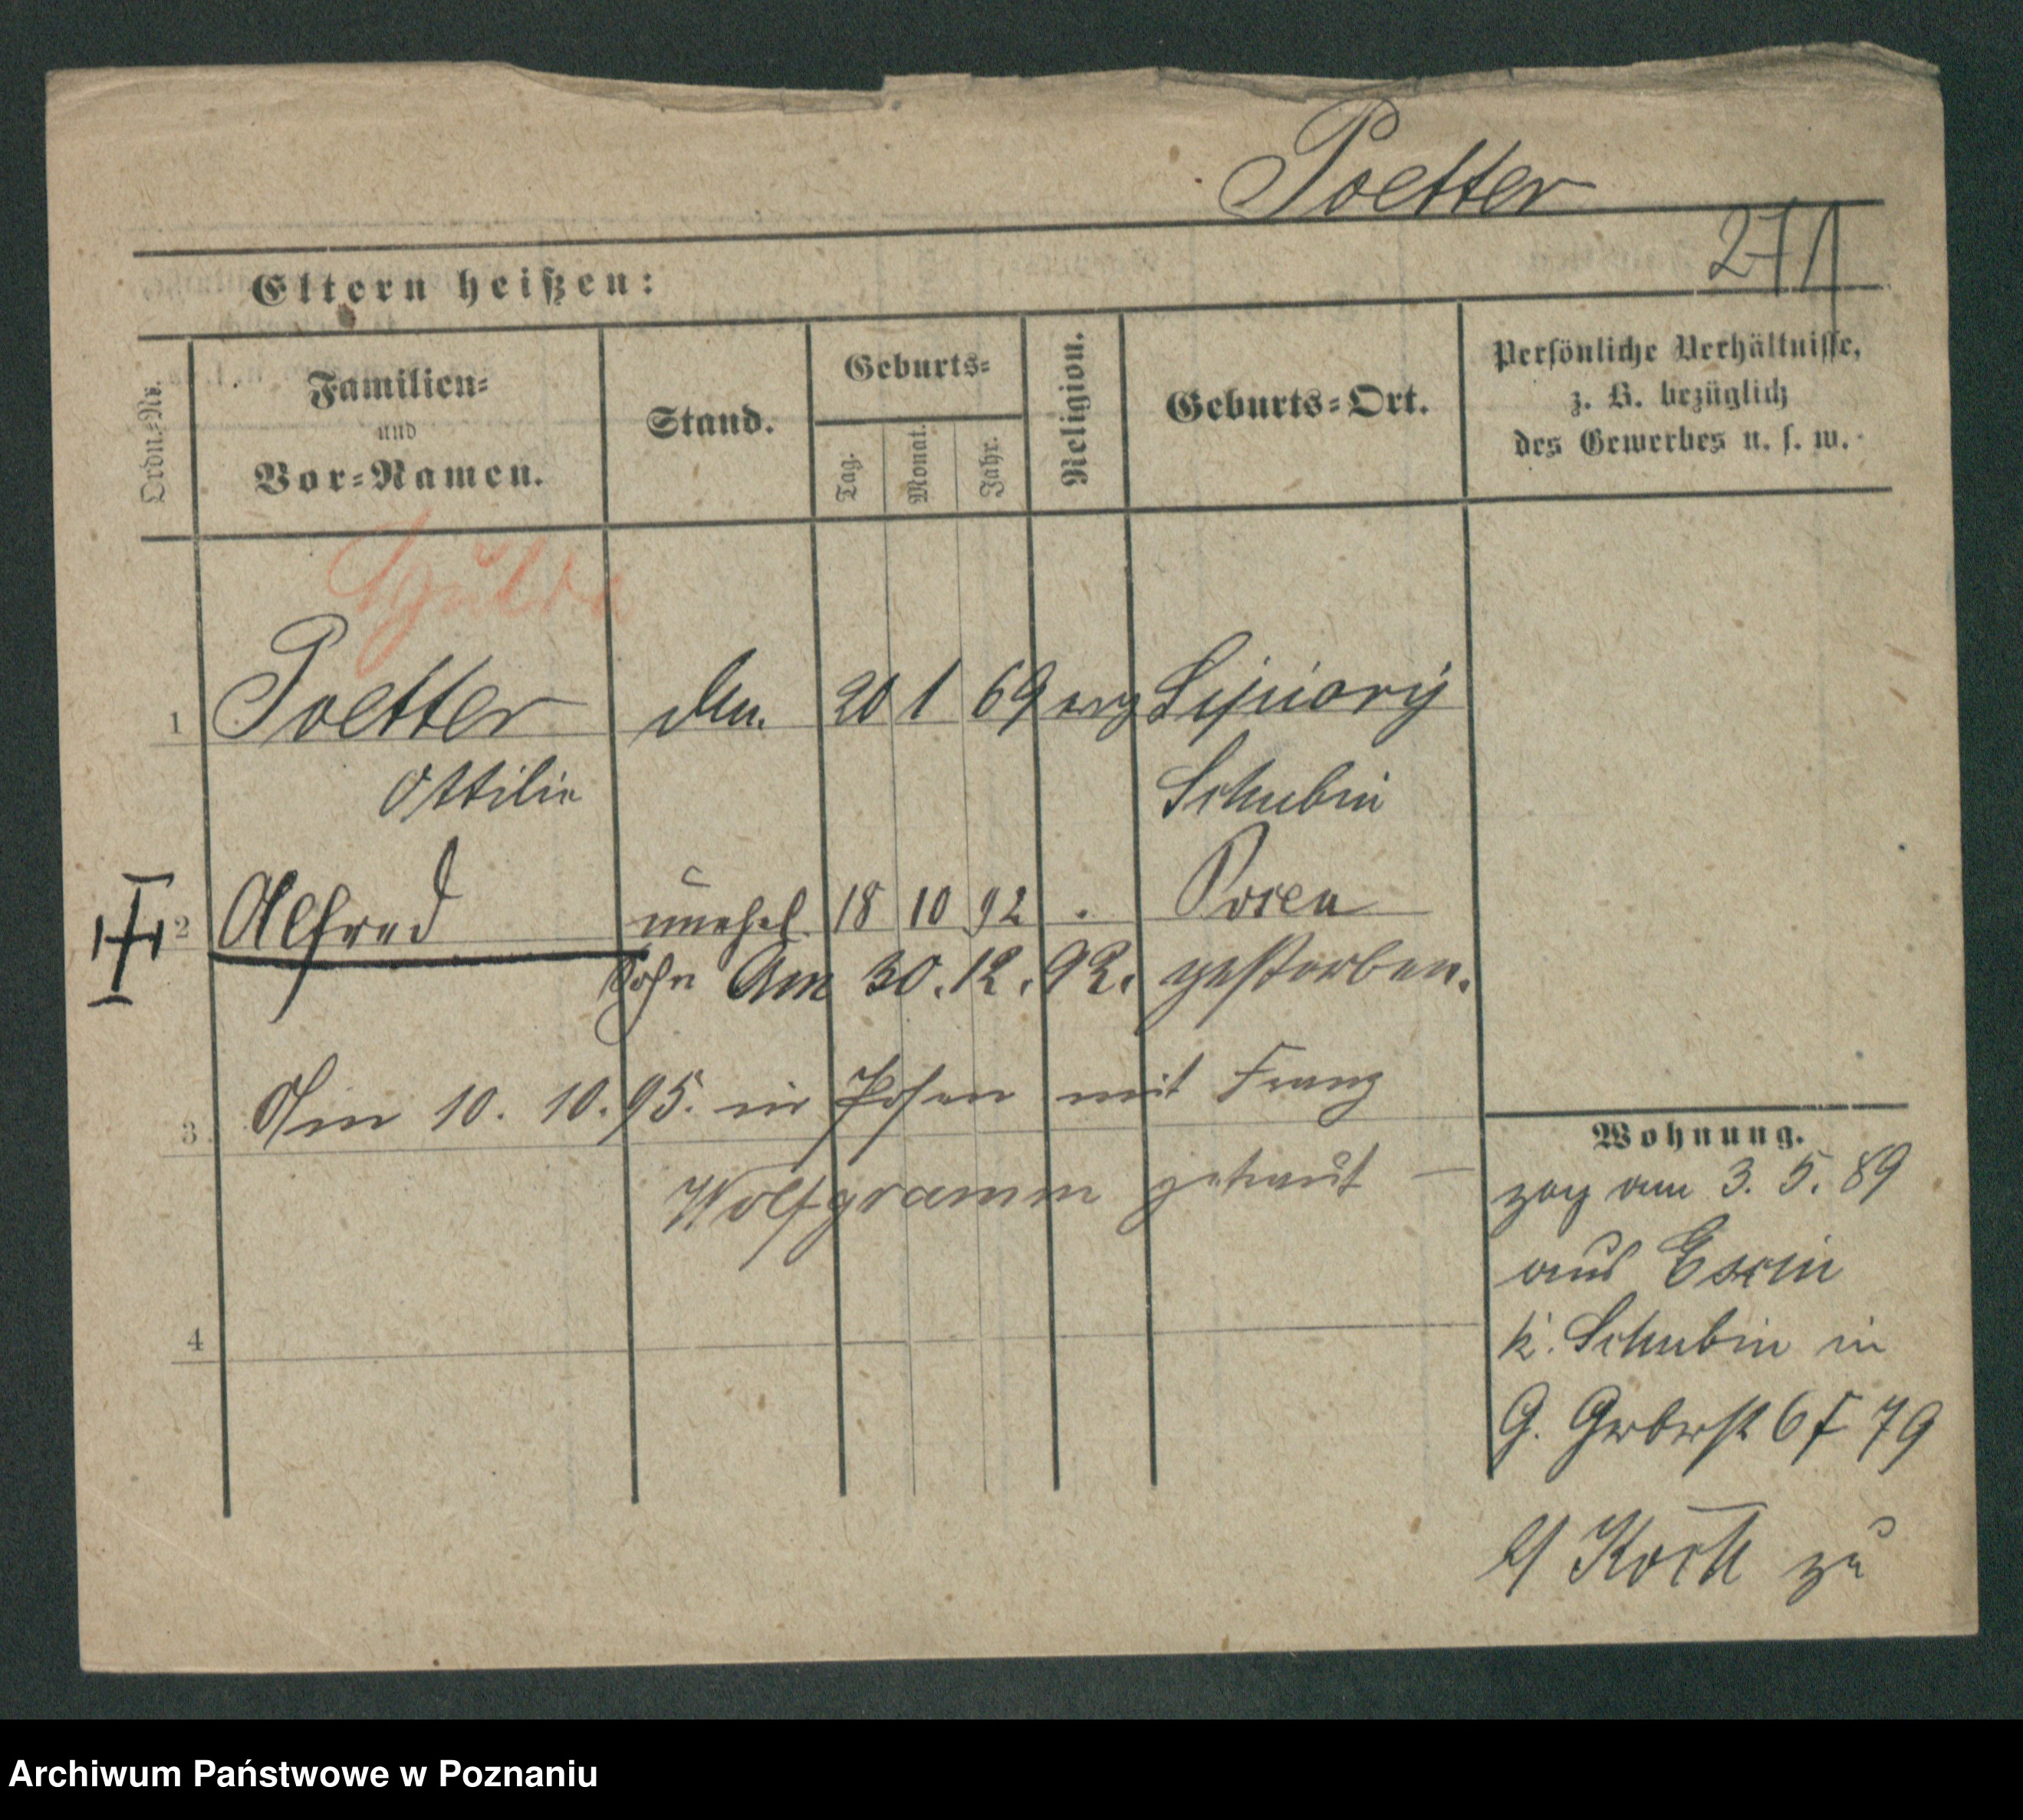 Poetter
271
Eltern heißen:
Ordn.-Nr.
Familien-
und
Vor-Namen.
Stand.
Geburts-
Tag.
Monat.
Jahr.
Religion.
Geburts-Ort.
Persönliche Verhältnisse,
z. B. bezüglich
des Gewerbes u. s. w.
1 Poetter 20 1 69 evg
Ottilie Schubin
2 Alfred unehel. 18 10 92 Posen
Sohn Am 30. 12. 92. gestorben.
3 Am 10. 10. 95. in Posen mit Franz
Wolfgramm getraut —
4
Wohnung.
zog am 3. 5. 89
aus Exin
K. Schubin in
G. Gerberst 6 f 79
b/ Koch zu
Archiwum Państwowe w Poznaniu